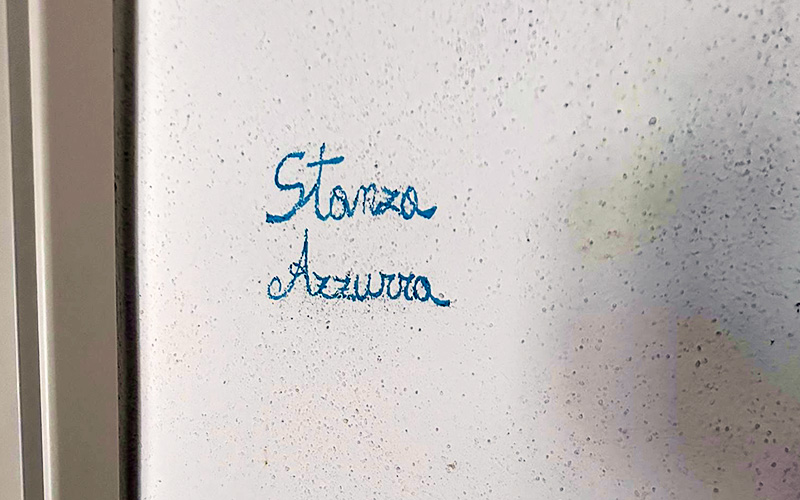 Stanza
Azzurra